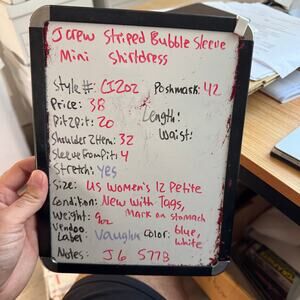 Jcrew Striped Bubble Sleeve
Mini Shirtdress
Style#: CI202 Poshmark: 42
Price: 38 Length:
Pit2Pit: 20 Waist:
Shoulder2Hem: 32
SleeveFromPit: 4
Stretch: yes
Size: US Women's 12 Petite
Condition: New With Tags,
Mark on stomach
Weight: 9oz
Vendoo Label: Vaughn Color: blue, white
Notes: J6 577B